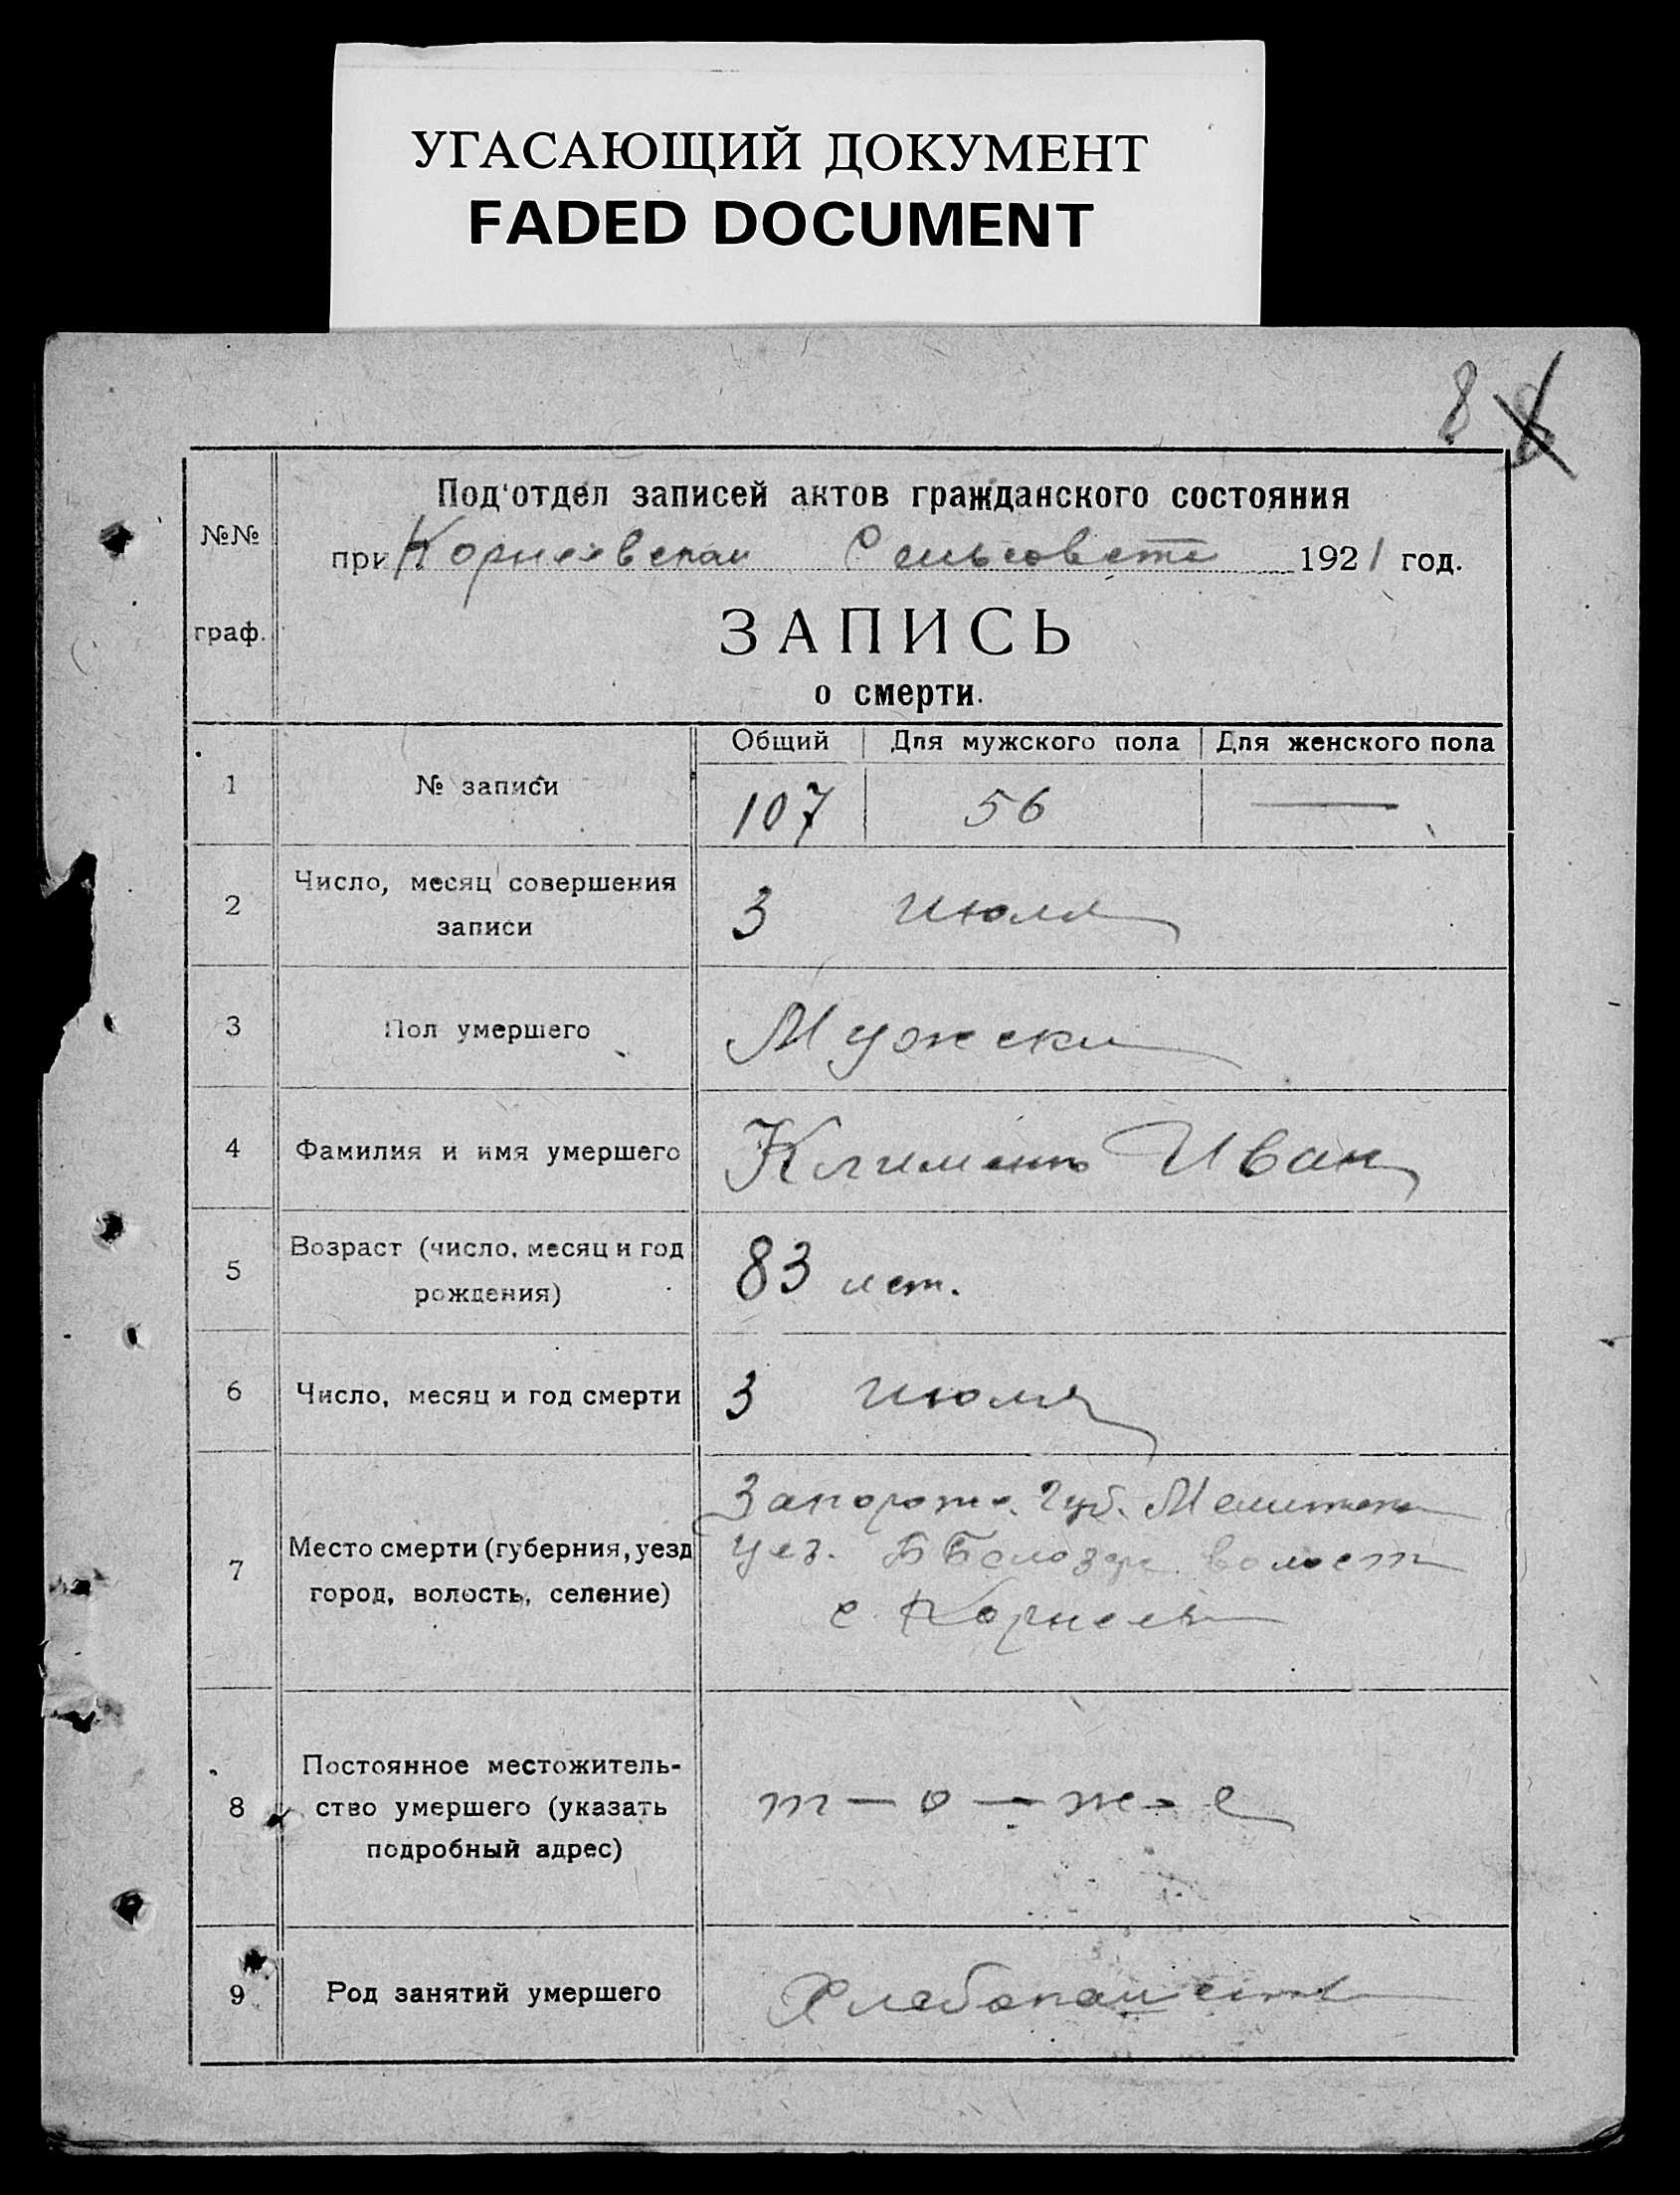 УГАСАЮЩИЙ ДОКУМЕНТ
FADED DOCUMENT
8 8
№№ граф.
Под'отдел записей актов гражданского состояния
при Корнеевском Сельсовете 1921 год.
ЗАПИСЬ
о смерти.
Общий Для мужского пола Для женского пола
1 № записи 107 56 —
2 Число, месяц совершения
записи
3 июля
3 Пол умершего Мужски
4 Фамилия и имя умершего Клименко Иван
5 Возраст (число, месяц и год
рождения)
83 лет.
6 Число, месяц и год смерти 3 июля
7 Место смерти (губерния, уезд
город, волость, селение)
Запорожс. Губ. Мелитоп
уез. Б Белозер волост
с. Корнеев
8 Постоянное местожитель-
ство умершего (указать
подробный адрес)
т-о-ж-е
9 Род занятий умершего Хлебопашест